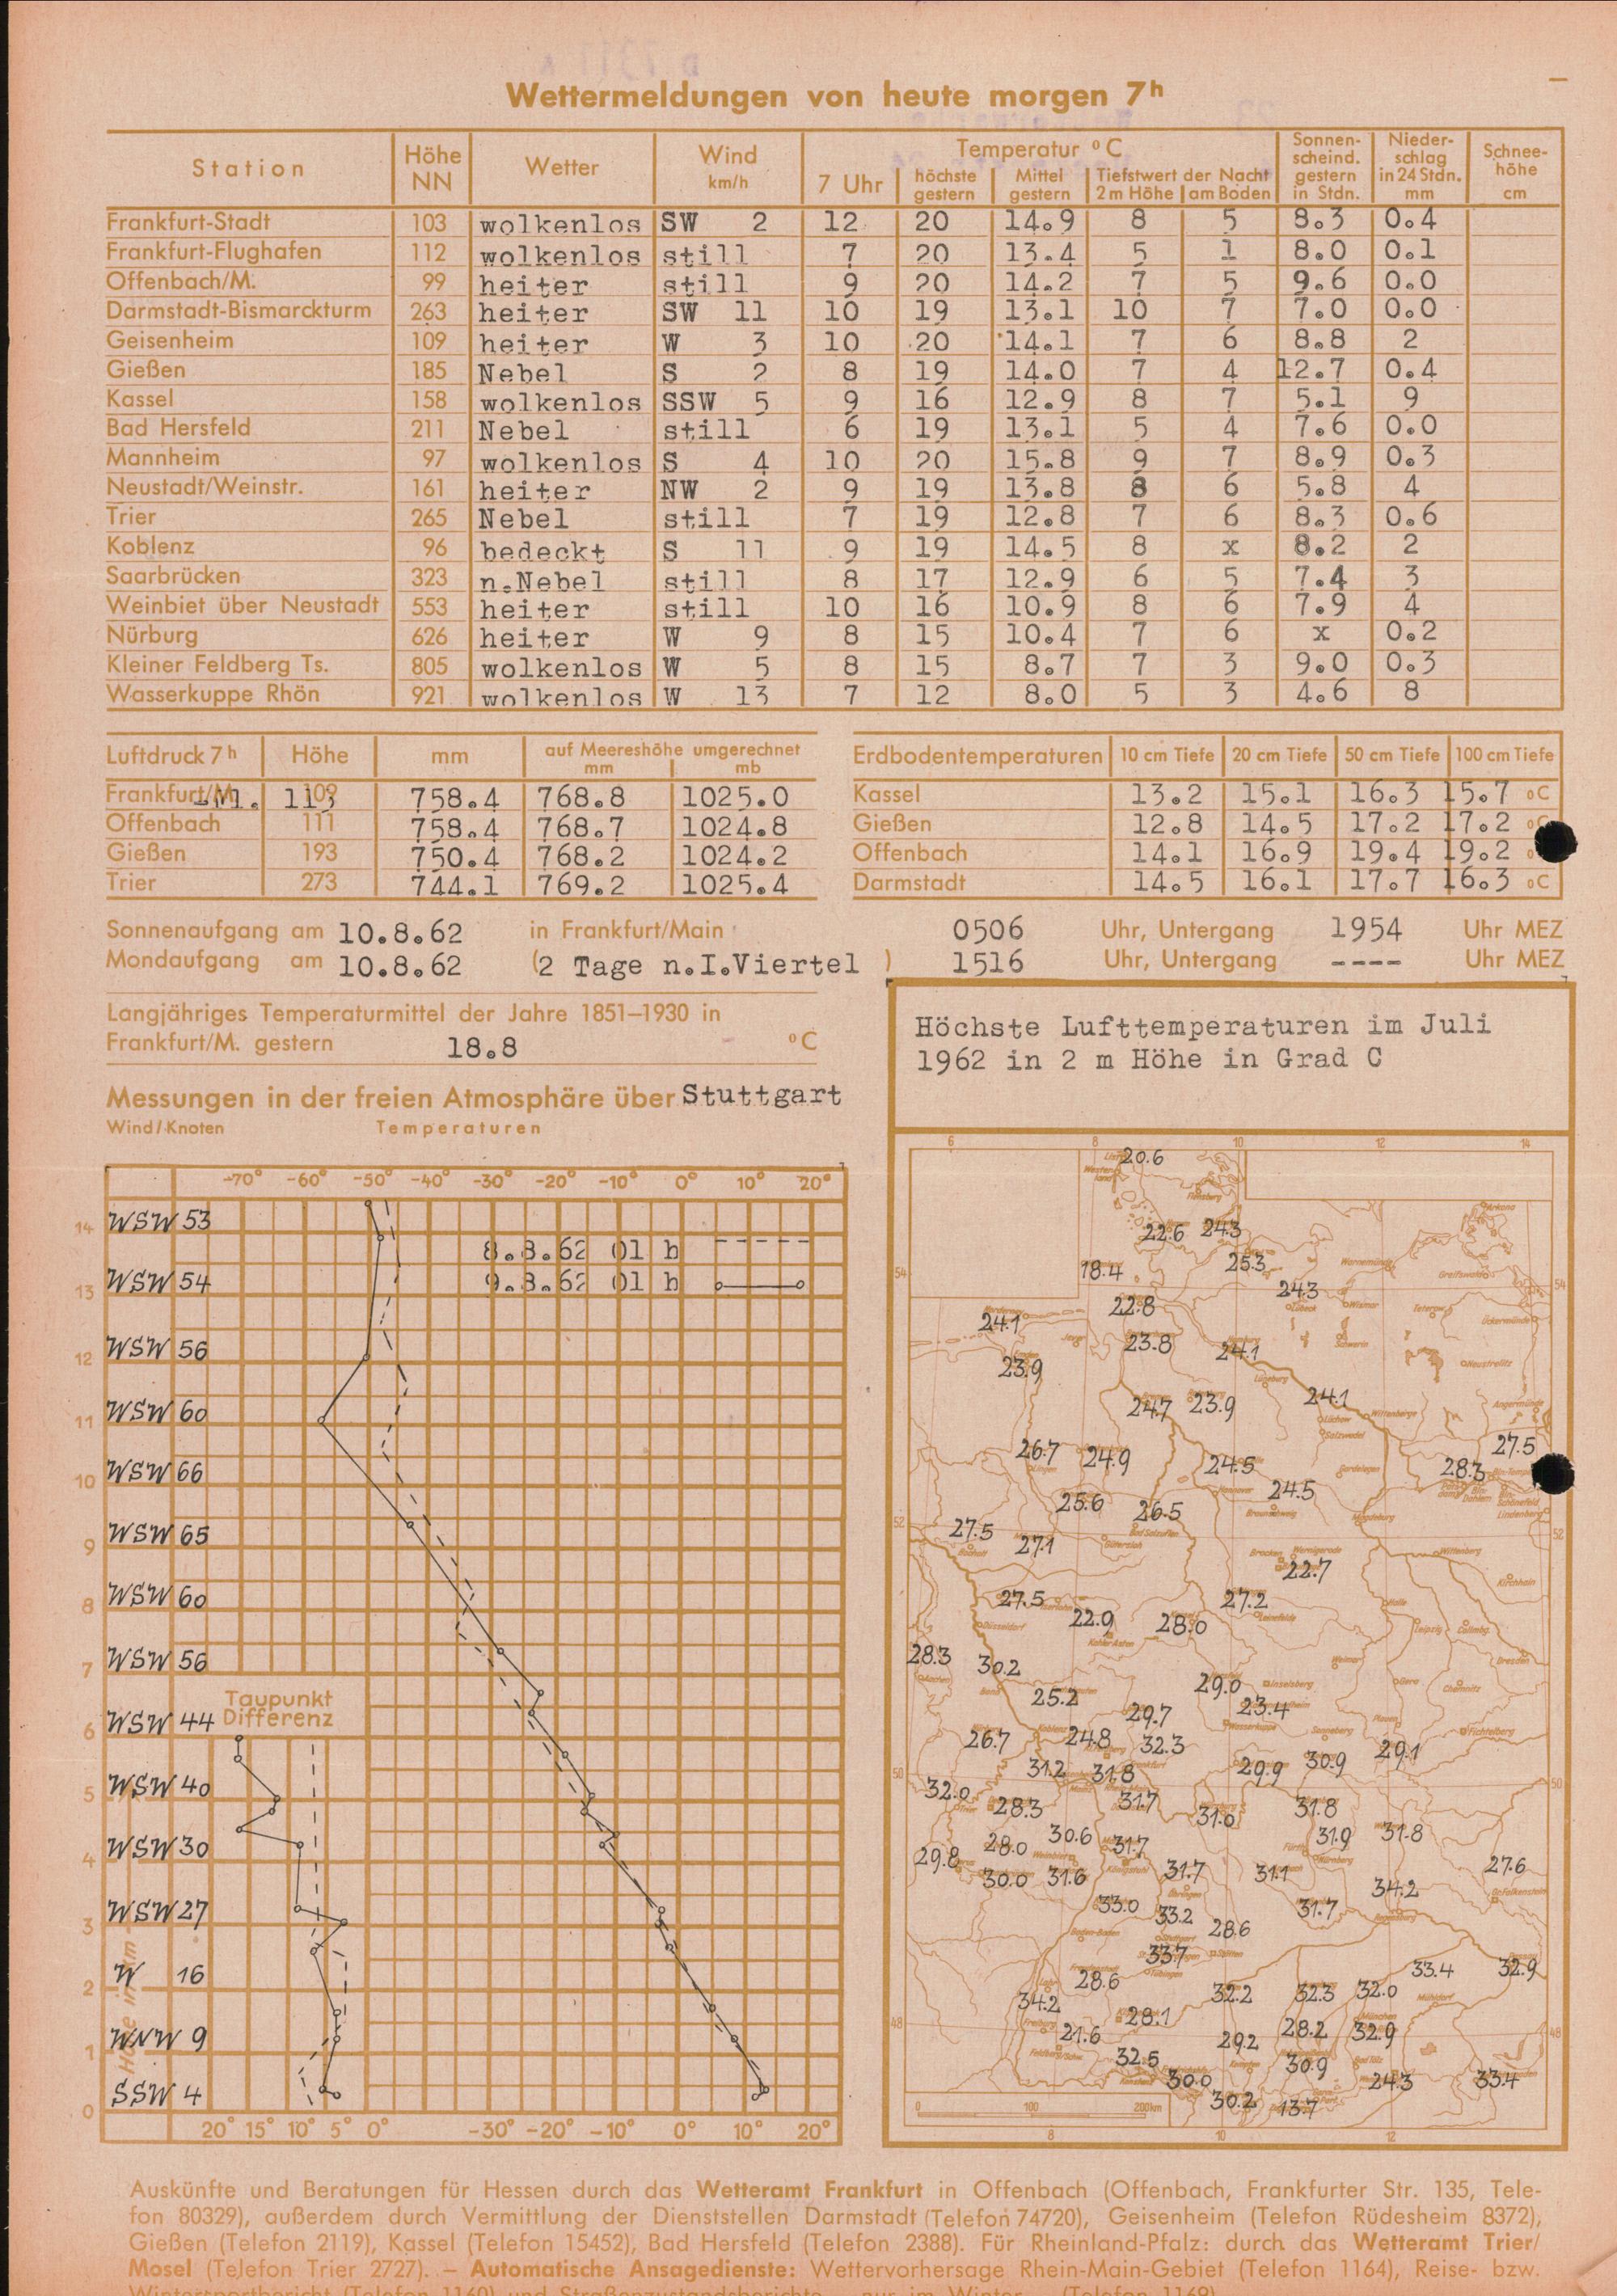 Wettermeldungen von heute morgen 7h
Station Höhe NN Wetter Wind km/h Temperatur °C 7 Uhr höchste gestern Mittel gestern Tiefstwert der Nacht 2 m Höhe am Boden Sonnenscheind. gestern in Stdn. Niederschlag in 24 Stdn. mm Schneehöhe cm
Frankfurt-Stadt 103 wolkenlos SW 2 12 20 14.9 8 5 8.3 0.4
Frankfurt-Flughafen 112 wolkenlos still 7 20 13.4 5 1 8.0 0.1
Offenbach/M. 99 heiter still 9 20 14.2 7 5 9.6 0.0
Darmstadt-Bismarckturm 263 heiter SW 11 10 19 13.1 10 7 7.0 0.0
Geisenheim 109 heiter W 3 10 20 14.1 7 6 8.8 2
Gießen 185 Nebel S 2 8 19 14.0 7 4 12.7 0.4
Kassel 158 wolkenlos SSW 5 9 16 12.9 8 7 5.1 9
Bad Hersfeld 211 Nebel still 6 19 13.1 5 4 7.6 0.0
Mannheim 97 wolkenlos S 4 10 20 15.8 9 7 8.9 0.3
Neustadt/Weinstr. 161 heiter NW 2 9 19 13.8 8 6 5.8 4
Trier 265 Nebel still 7 19 12.8 7 6 8.3 0.6
Koblenz 96 bedeckt S 11 9 19 14.5 8 x 8.2 2
Saarbrücken 323 n.Nebel still 8 17 12.9 6 5 7.4 3
Weinbiet über Neustadt 553 heiter still 10 16 10.9 8 6 7.9 4
Nürburg 626 heiter W 9 8 15 10.4 7 6 x 0.2
Kleiner Feldberg Ts. 805 wolkenlos W 5 8 15 8.7 7 3 9.0 0.3
Wasserkuppe Rhön 921 wolkenlos W 13 7 12 8.0 5 3 4.6 8
Luftdruck 7h Höhe mm auf Meereshöhe umgerechnet mm mb
Frankfurt/M. -M. 109 113 758.4 768.8 1025.0
Offenbach 111 758.4 768.7 1024.8
Gießen 193 750.4 768.2 1024.2
Trier 273 744.1 769.2 1025.4
Erdbodentemperaturen 10 cm Tiefe 20 cm Tiefe 50 cm Tiefe 100 cm Tiefe
Kassel 13.2 15.1 16.3 15.7 °C
Gießen 12.8 14.5 17.2 17.2
Offenbach 14.1 16.9 19.4 19.2
Darmstadt 14.5 16.1 17.7 16.3 °C
Sonnenaufgang am 10.8.62 in Frankfurt/Main 0506 Uhr, Untergang 1954 Uhr MEZ
Mondaufgang am 10.8.62 (2 Tage n.I.Viertel ) 1516 Uhr, Untergang ---- Uhr MEZ
Langjähriges Temperaturmittel der Jahre 1851–1930 in
Frankfurt/M. gestern 18.8 °C
Messungen in der freien Atmosphäre über Stuttgart
Wind/Knoten Temperaturen
-70° -60° -50° -40° -30° -20° -10° 0° 10° 20°
14 WSW 53
8.8.62 01 h
9.8.62 01 h
13 WSW 54
12 WSW 56
11 WSW 60
10 WSW 66
9 WSW 65
8 WSW 60
7 WSW 56
Taupunkt
Differenz
6 WSW 44
5 WSW 40
4 WSW 30
3 WSW 27
2 W 16
1 WNW 9
0 SSW 4
20° 15° 10° 5° 0° -30° -20° -10° 0° 10° 20°
Höchste Lufttemperaturen im Juli
1962 in 2 m Höhe in Grad C
6 8 10 12 14
20.6
22.6 24.3
18.4 25.3
54 24.3 54
24.1 22.8
23.8 24.1
23.9
24.7 23.9 24.1
26.7 24.9 24.5 28.3 27.5
25.6 26.5 24.5
52 27.5 27.1 52
22.7
27.5 22.9 28.0 27.2
28.3 30.2
25.2 29.0 23.4
29.7
26.7 24.8 32.3 29.9 30.9 29.1
50 31.2 31.8 50
32.0 28.3 31.7 31.0 31.8
28.0 30.6 31.7 31.9 31.8
29.8 30.0 31.6 31.7 31.1 27.6
33.0 33.2 31.7 34.2
28.6
33.7 33.4 32.9
28.6 32.2 32.3 32.0
34.2 28.1
48 21.6 29.2 28.2 32.9 48
32.5 30.9
30.0 24.3 33.4
30.2 13.7
0 100 200km
8 10 12
Auskünfte und Beratungen für Hessen durch das Wetteramt Frankfurt in Offenbach (Offenbach, Frankfurter Str. 135, Tele-
fon 80329), außerdem durch Vermittlung der Dienststellen Darmstadt (Telefon 74720), Geisenheim (Telefon Rüdesheim 8372),
Gießen (Telefon 2119), Kassel (Telefon 15452), Bad Hersfeld (Telefon 2388). Für Rheinland-Pfalz: durch das Wetteramt Trier/
Mosel (Telefon Trier 2727). – Automatische Ansagedienste: Wettervorhersage Rhein-Main-Gebiet (Telefon 1164), Reise- bzw.
Wintersportbericht (Telefon 1160) und Straßenzustandsberichte – nur im Winter – (Telefon 1169)